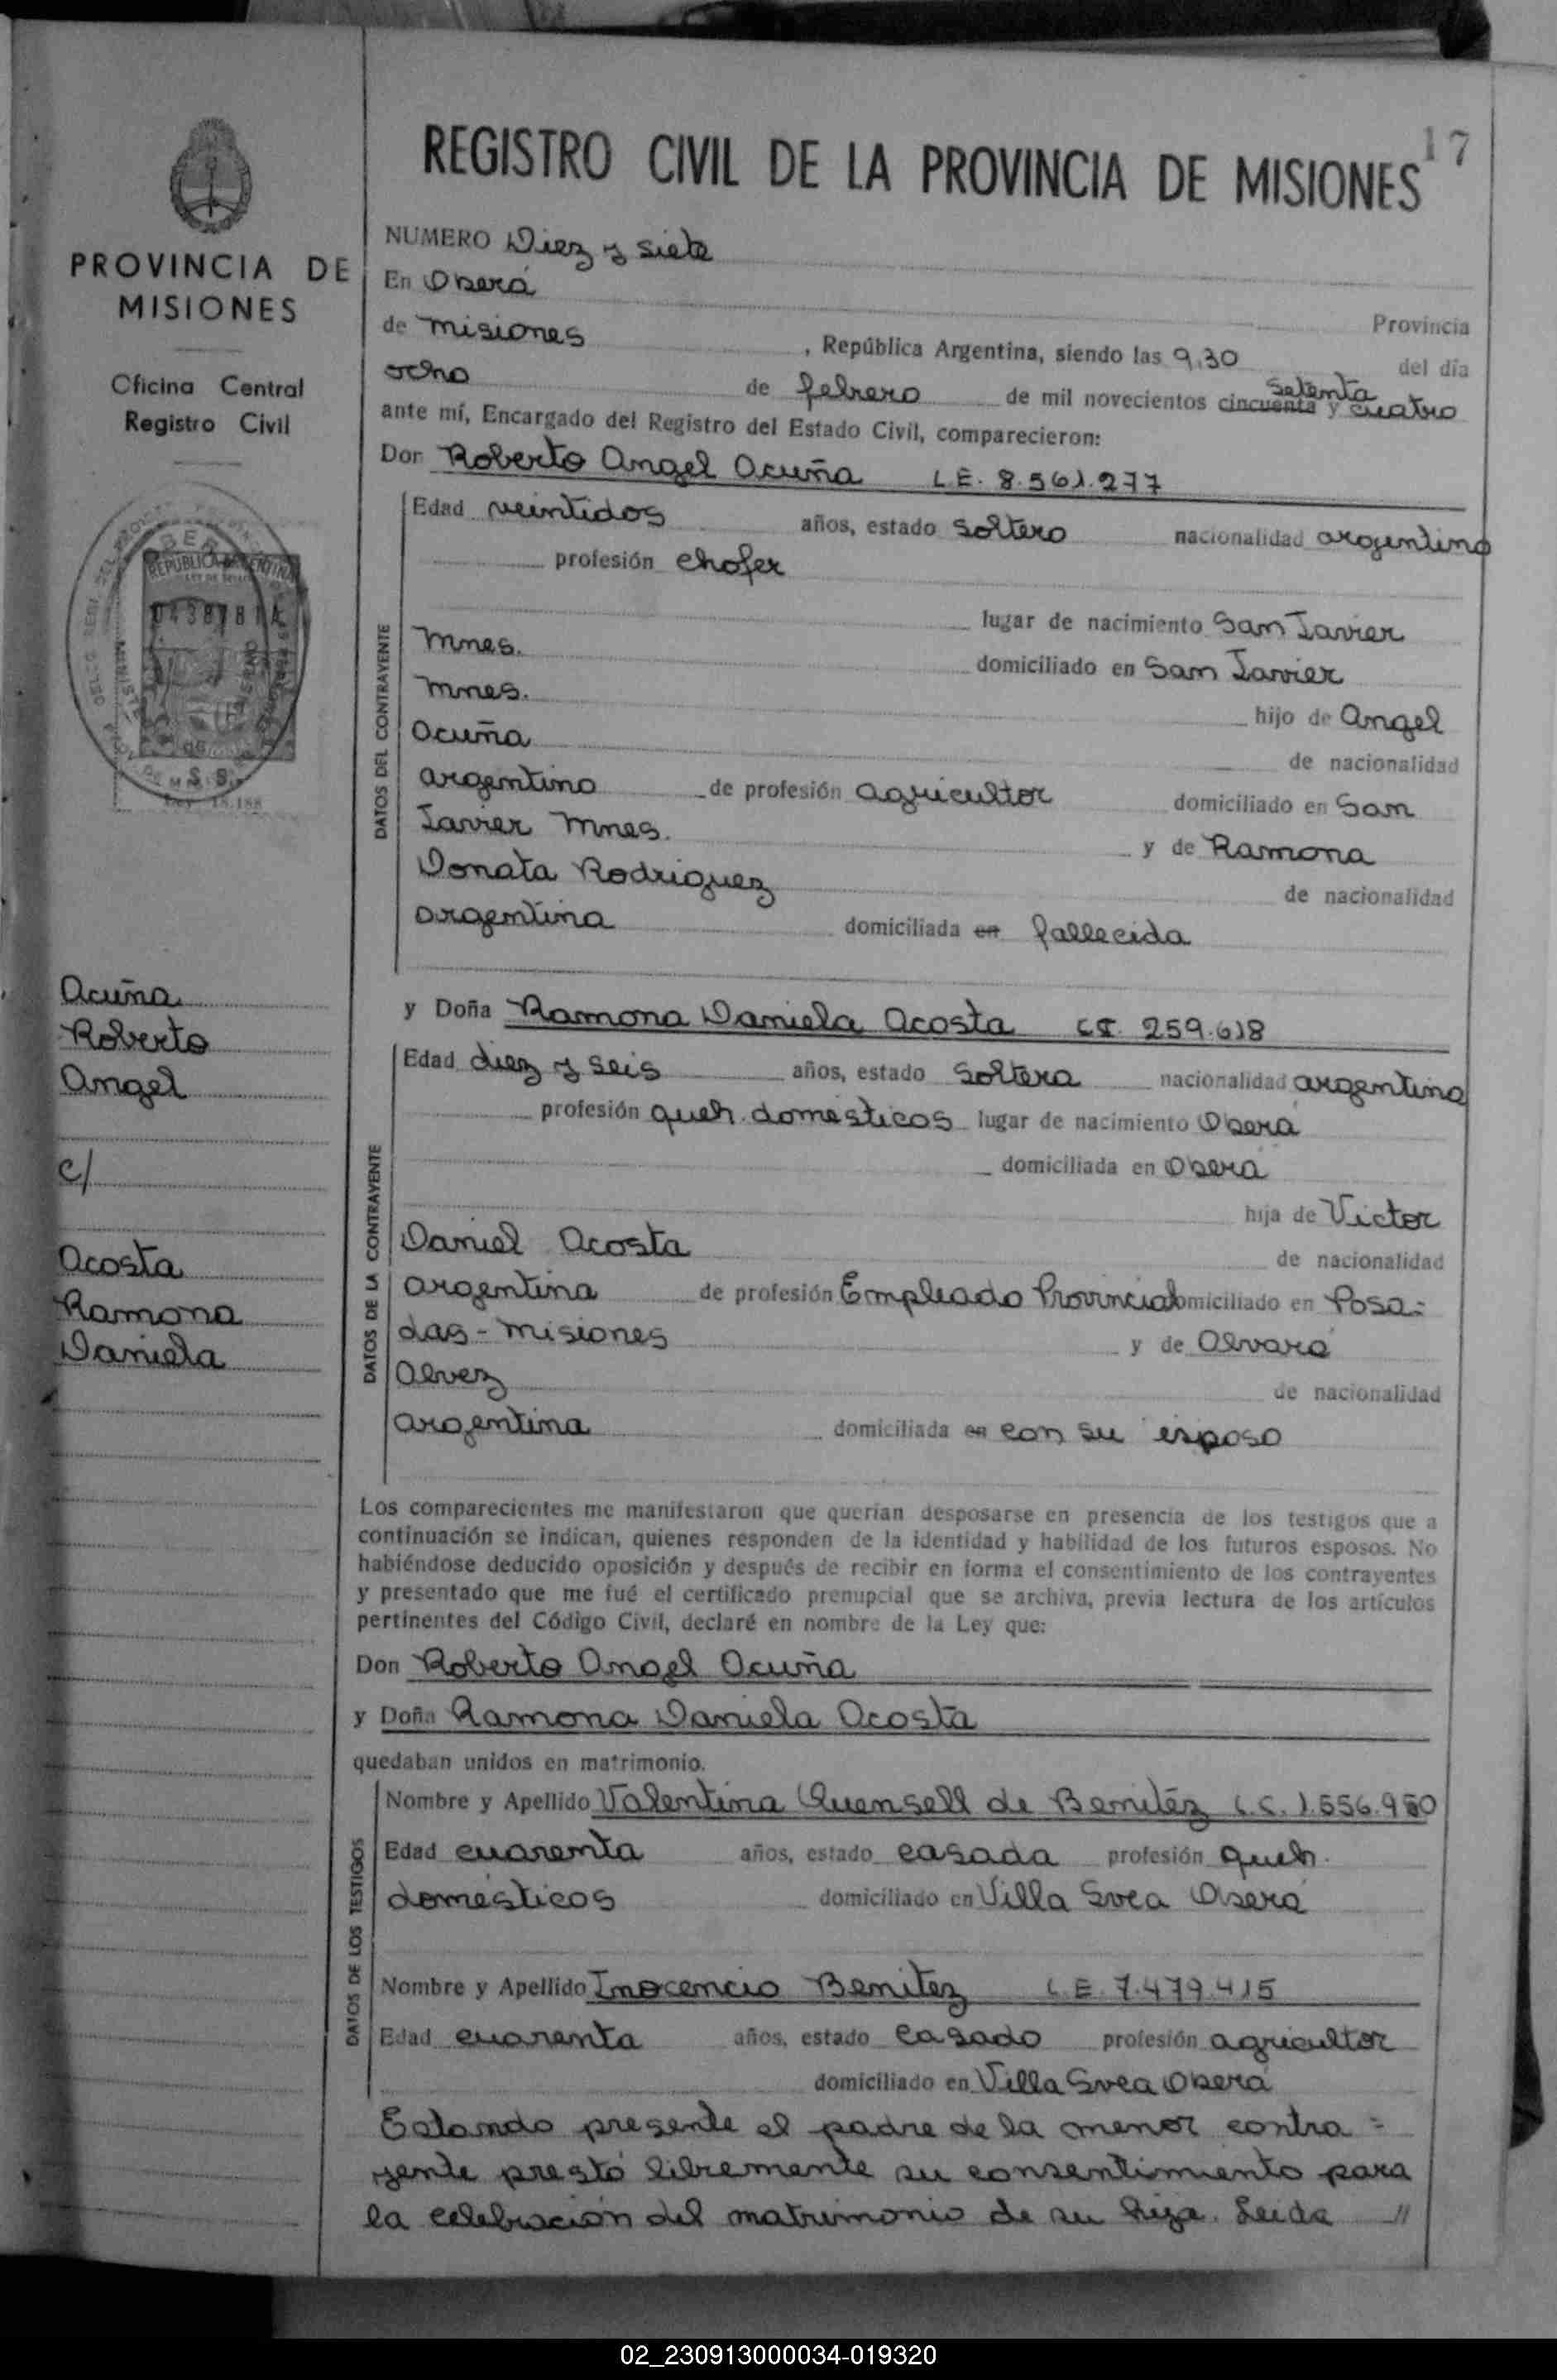 17
REGISTRO CIVIL DE LA PROVINCIA DE MISIONES
PROVINCIA DE
MISIONES
Oficina Central
Registro Civil
REPUBLICA ARGENTINA
Ley 18.188
Acuña
Roberto
Angel
c/
Acosta
Ramona
Daniela
NUMERO Diez y siete
En Oberá
Provincia
de Misiones , República Argentina, siendo las 9,30 del día
ocho de febrero de mil novecientos cincuenta setenta y cuatro
ante mí, Encargado del Registro del Estado Civil, comparecieron:
Don Roberto Angel Acuña L.E. 8.561.277
DATOS DEL CONTRAYENTE
Edad veintidos años, estado soltero nacionalidad argentino
profesión chofer
lugar de nacimiento San Javier
Mnes. domiciliado en San Javier
Mnes. hijo de Angel
Acuña de nacionalidad
argentino de profesión agricultor domiciliado en San
Javier Mnes. y de Ramona
Donata Rodriguez de nacionalidad
argentina domiciliada en fallecida
y Doña Ramona Daniela Acosta C.I. 259.618
DATOS DE LA CONTRAYENTE
Edad diez y seis años, estado soltera nacionalidad argentina
profesión queh. domésticos lugar de nacimiento Oberá
domiciliada en Oberá
hija de Victor
Daniel Acosta de nacionalidad
argentina de profesión Empleado Provincial domiciliado en Posa=
das - Misiones y de Alvara
Alvez de nacionalidad
argentina domiciliada en con su esposo
Los comparecientes me manifestaron que querían desposarse en presencia de los testigos que a
continuación se indican, quienes responden de la identidad y habilidad de los futuros esposos. No
habiéndose deducido oposición y después de recibir en forma el consentimiento de los contrayentes
y presentado que me fué el certificado prenupcial que se archiva, previa lectura de los artículos
pertinentes del Código Civil, declaré en nombre de la Ley que:
Don Roberto Angel Acuña
y Doña Ramona Daniela Acosta
quedaban unidos en matrimonio.
DATOS DE LOS TESTIGOS
Nombre y Apellido Valentina Quensell de Benitéz L.C. 1.556.950
Edad cuarenta años, estado casada profesión queh.
domésticos domiciliado en Villa Svea Oberá
Nombre y Apellido Inocencio Benitez L.E. 7.479.415
Edad cuarenta años, estado casado profesión agricultor
domiciliado en Villa Svea Oberá
Estando presente el padre de la menor contra=
yente prestó libremente su consentimiento para
la celebración del matrimonio de su hija. Leida //
02_230913000034-019320